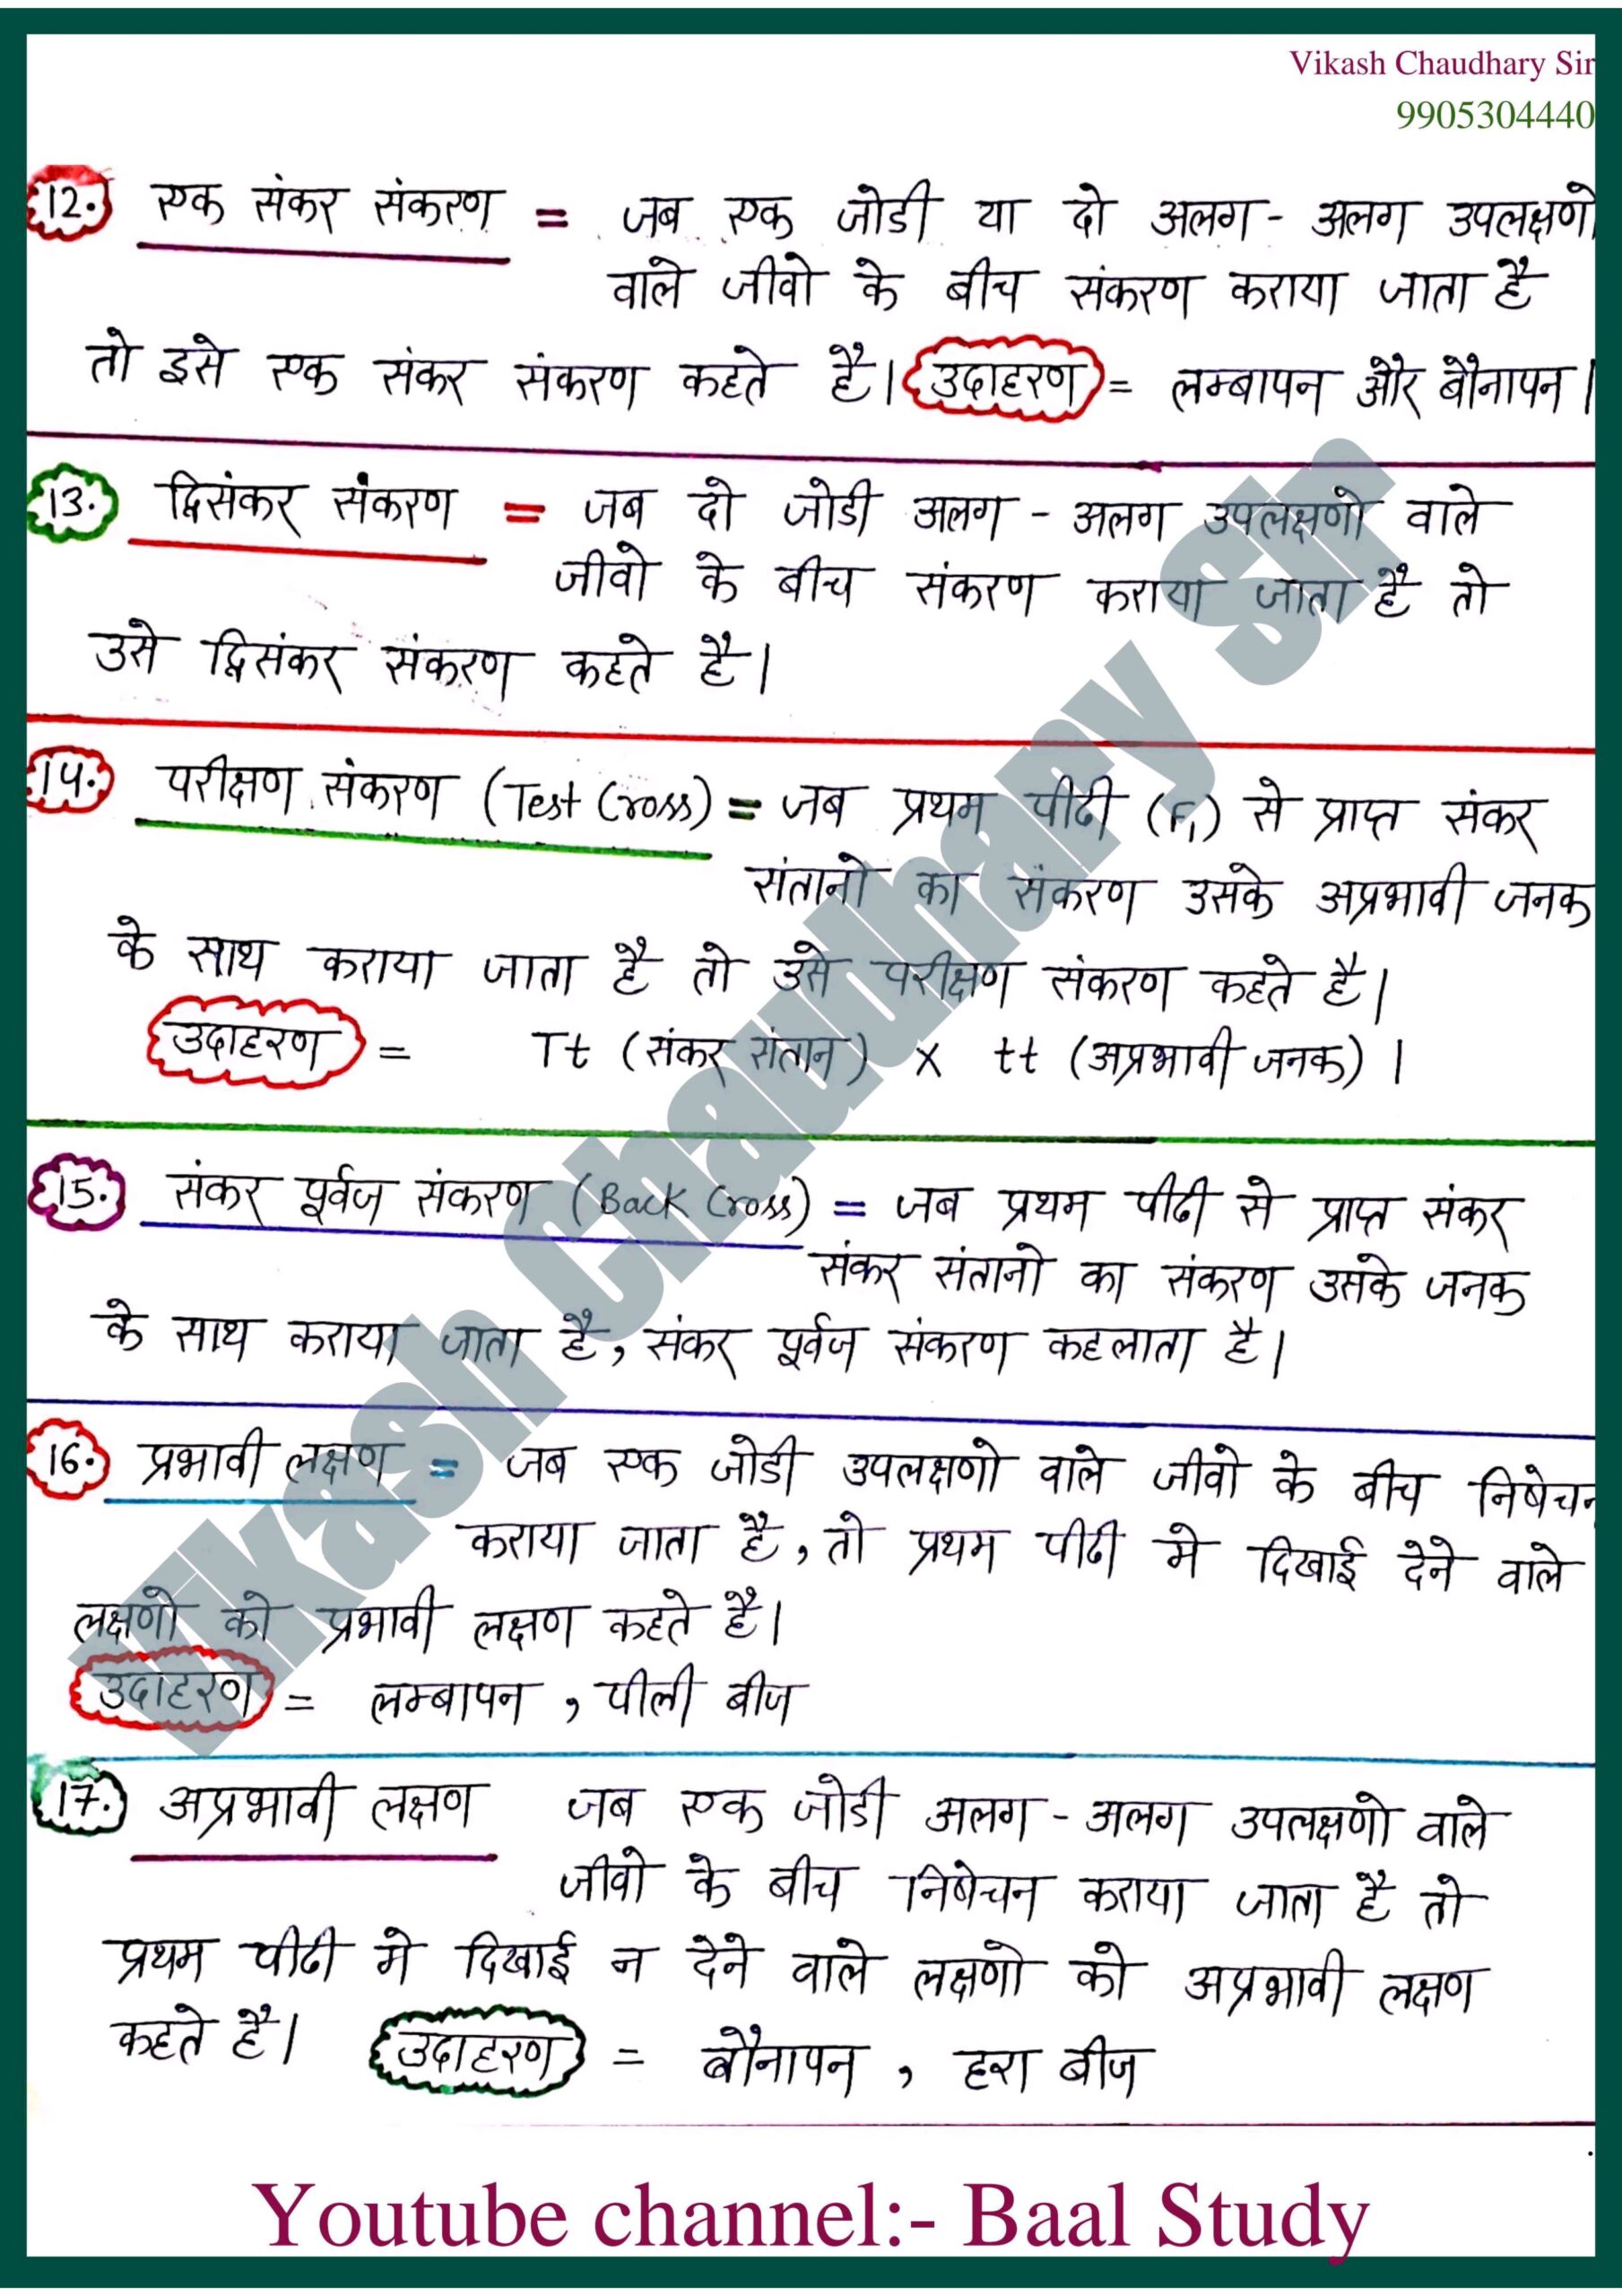 Vikash Chaudhary Sir
9905304440
12. एक संकर संकरण = जब एक जोडी या दो अलग - अलग उपलक्षणो
वाले जीवो के बीच संकरण कराया जाता है
तो इसे एक संकर संकरण कहते है। उदाहरण = लम्बापन और बौनापन।
13. द्विसंकर संकरण = जब दो जोडी अलग - अलग उपलक्षणो वाले
जीवो के बीच संकरण कराया जाता है तो
उसे द्विसंकर संकरण कहते है।
14. परीक्षण संकरण (Test Cross) = जब प्रथम पीढी (F₁) से प्राप्त संकर
संतानो का संकरण उसके अप्रभावी जनक
के साथ कराया जाता है तो उसे परीक्षण संकरण कहते है।
उदाहरण = Tt (संकर संतान) x tt (अप्रभावी जनक)।
15. संकर पूर्वज संकरण (Back Cross) = जब प्रथम पीढी से प्राप्त संकर
संकर संतानो का संकरण उसके जनक
के साथ कराया जाता है, संकर पूर्वज संकरण कहलाता है।
16. प्रभावी लक्षण = जब एक जोडी उपलक्षणो वाले जीवो के बीच निषेचन
कराया जाता है, तो प्रथम पीढी मे दिखाई देने वाले
लक्षणो को प्रभावी लक्षण कहते है।
उदाहरण = लम्बापन, पीली बीज
17. अप्रभावी लक्षण जब एक जोडी अलग - अलग उपलक्षणो वाले
जीवो के बीच निषेचन कराया जाता है तो
प्रथम पीढी मे दिखाई न देने वाले लक्षणो को अप्रभावी लक्षण
कहते है। उदाहरण = बौनापन, हरा बीज
Vikash Chaudhary Sir
Youtube channel:- Baal Study